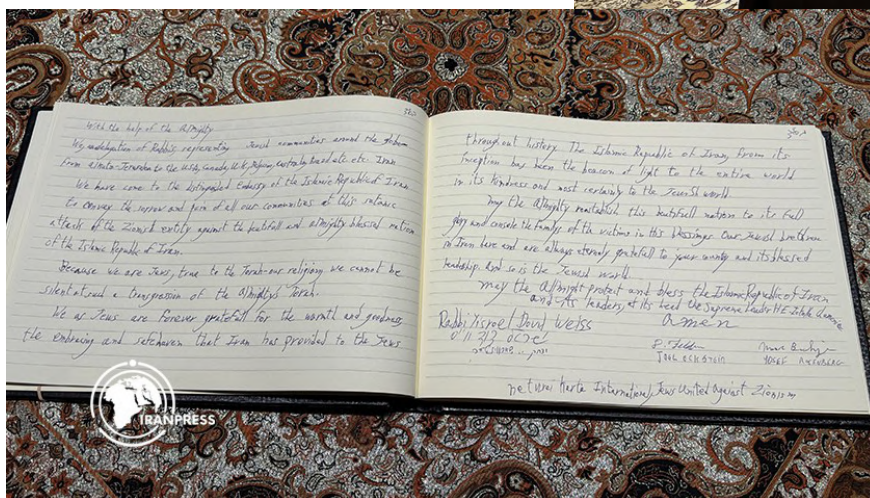 With the help of the Almighty
We, a delegation of Rabbis representing Jewish communities around the
from Jerusalem to the USA, Canada, U.K, Belgium, Australia etc. etc. Iran
We have come to the Embassy of the Islamic Republic of Iran
to convey the sorrow and pain of all our communities at this satanic
attack of the Zionist entity against the beatifull and almighty blessed nation
of the Islamic Republic of Iran.
Because we are Jews, true to the Torah-our religion, we cannot be
silent at such a transgression of the Almightys Torah.
We as Jews are forever gratefull for the warmth and goodness,
the embracing and safehaven that Iran has provided to the Jews
throughout history. The Islamic Republic of Iran, from its
inception has been the beacon of light to the entire world
in its kindness and most certainly to the Jewish world.
May the Almighty reestablish this beatifull nation to its full
glory and console the familys of the victims in this blessings. Our Jewish brethren
in Iran have and are always eternaly gratefull to your country and its blessed
leadership. And so is the Jewish world.
May the Almighty protect and bless the Islamic Republic of Iran
and its leaders, at its head the Supreme Leader H.E.
amen
Rabbi Yisroel Dovid Weiss
ישראל דוד ווייס
E. Feldman
Neturei Karta International, Jews United Against Zionism
IRANPRESS